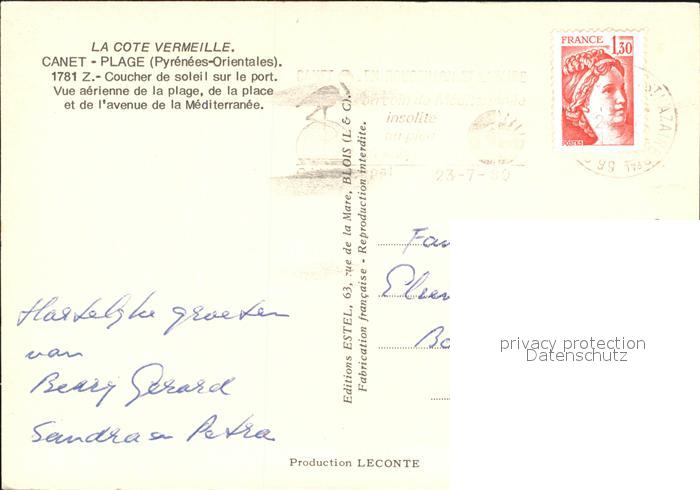 LA COTE VERMEILLE.
CANET - PLAGE (Pyrénées-Orientales).
1781 Z.- Coucher de soleil sur le port.
Vue aérienne de la plage, de la place
et de l'avenue de la Méditerranée.
FRANCE
1,30
insolite
23-7-80
66
Editions ESTEL, 63, rue de la Mare, BLOIS (L & C).
Fabrication française - Reproduction interdite.
Fam
privacy protection
Datenschutz
Hartelijke groeten
van
Gerard
Sandra en Petra
Production LECONTE